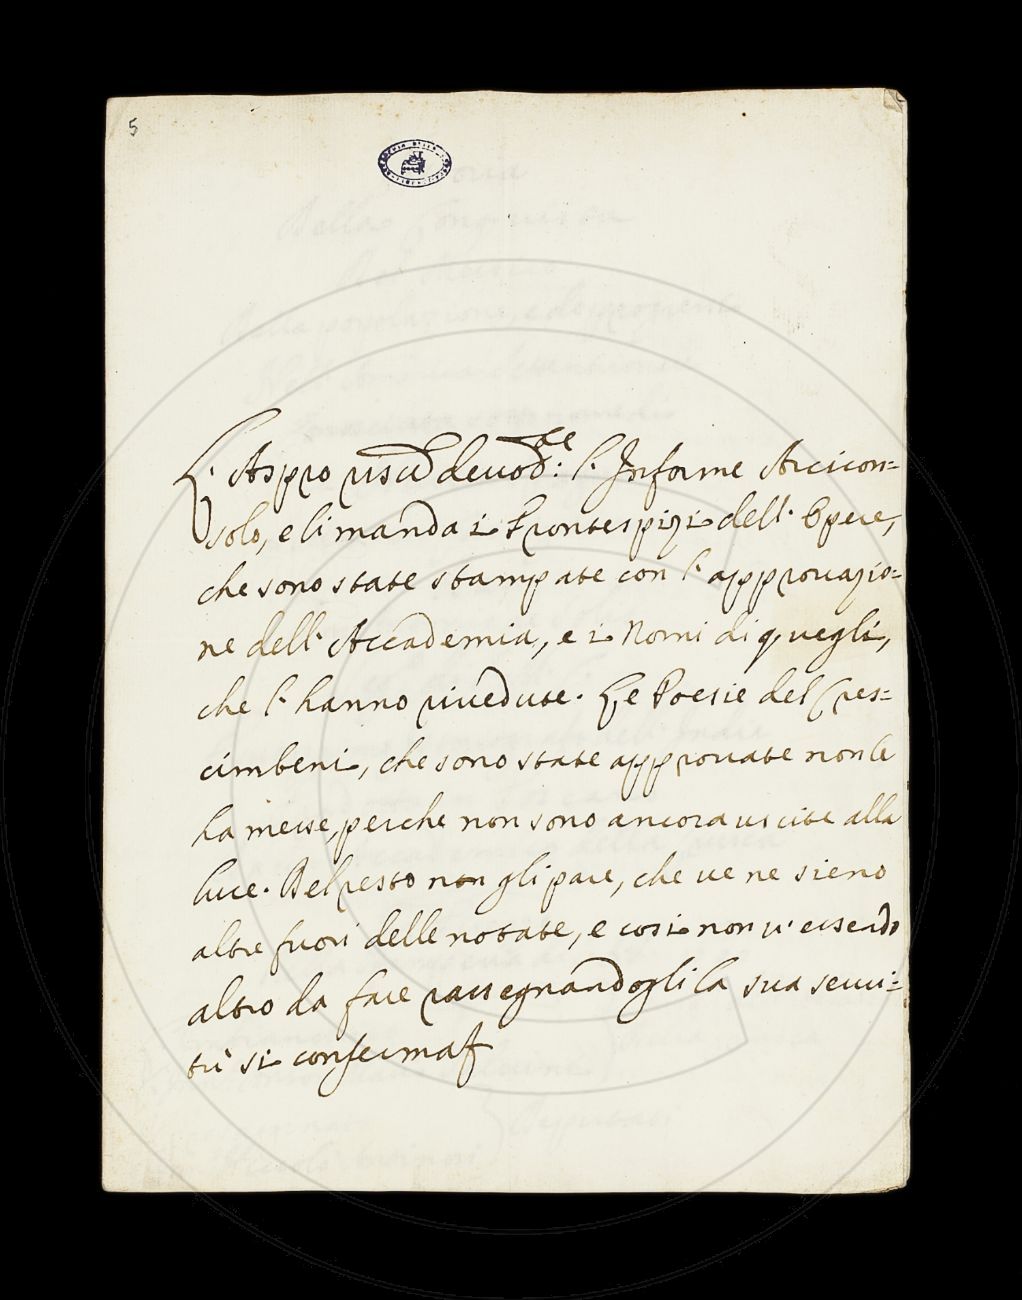 5
L'Aspro riscd devod.re: l'Inferme Arcicon=
solo, e li manda i Frontespizi dell' Opere,
che sono state stampate con l' approvazio=
ne dell' Accademia, e i Nomi di quegli,
che l' hanno rivedute. Le Poesie del Cres=
cimbeni, che sono state approvate non le
ha messe, perche non sono ancora uscite alla
luce. Del resto non gli pare, che ve ne sieno
altre fuori delle notate, e cosi non v' essendo
altro da fare rassegnandogli la sua servi=
tù si conferma